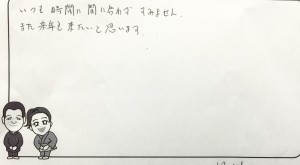 いつも時間に間に合わず すみません.
また来年も来たいと思います.